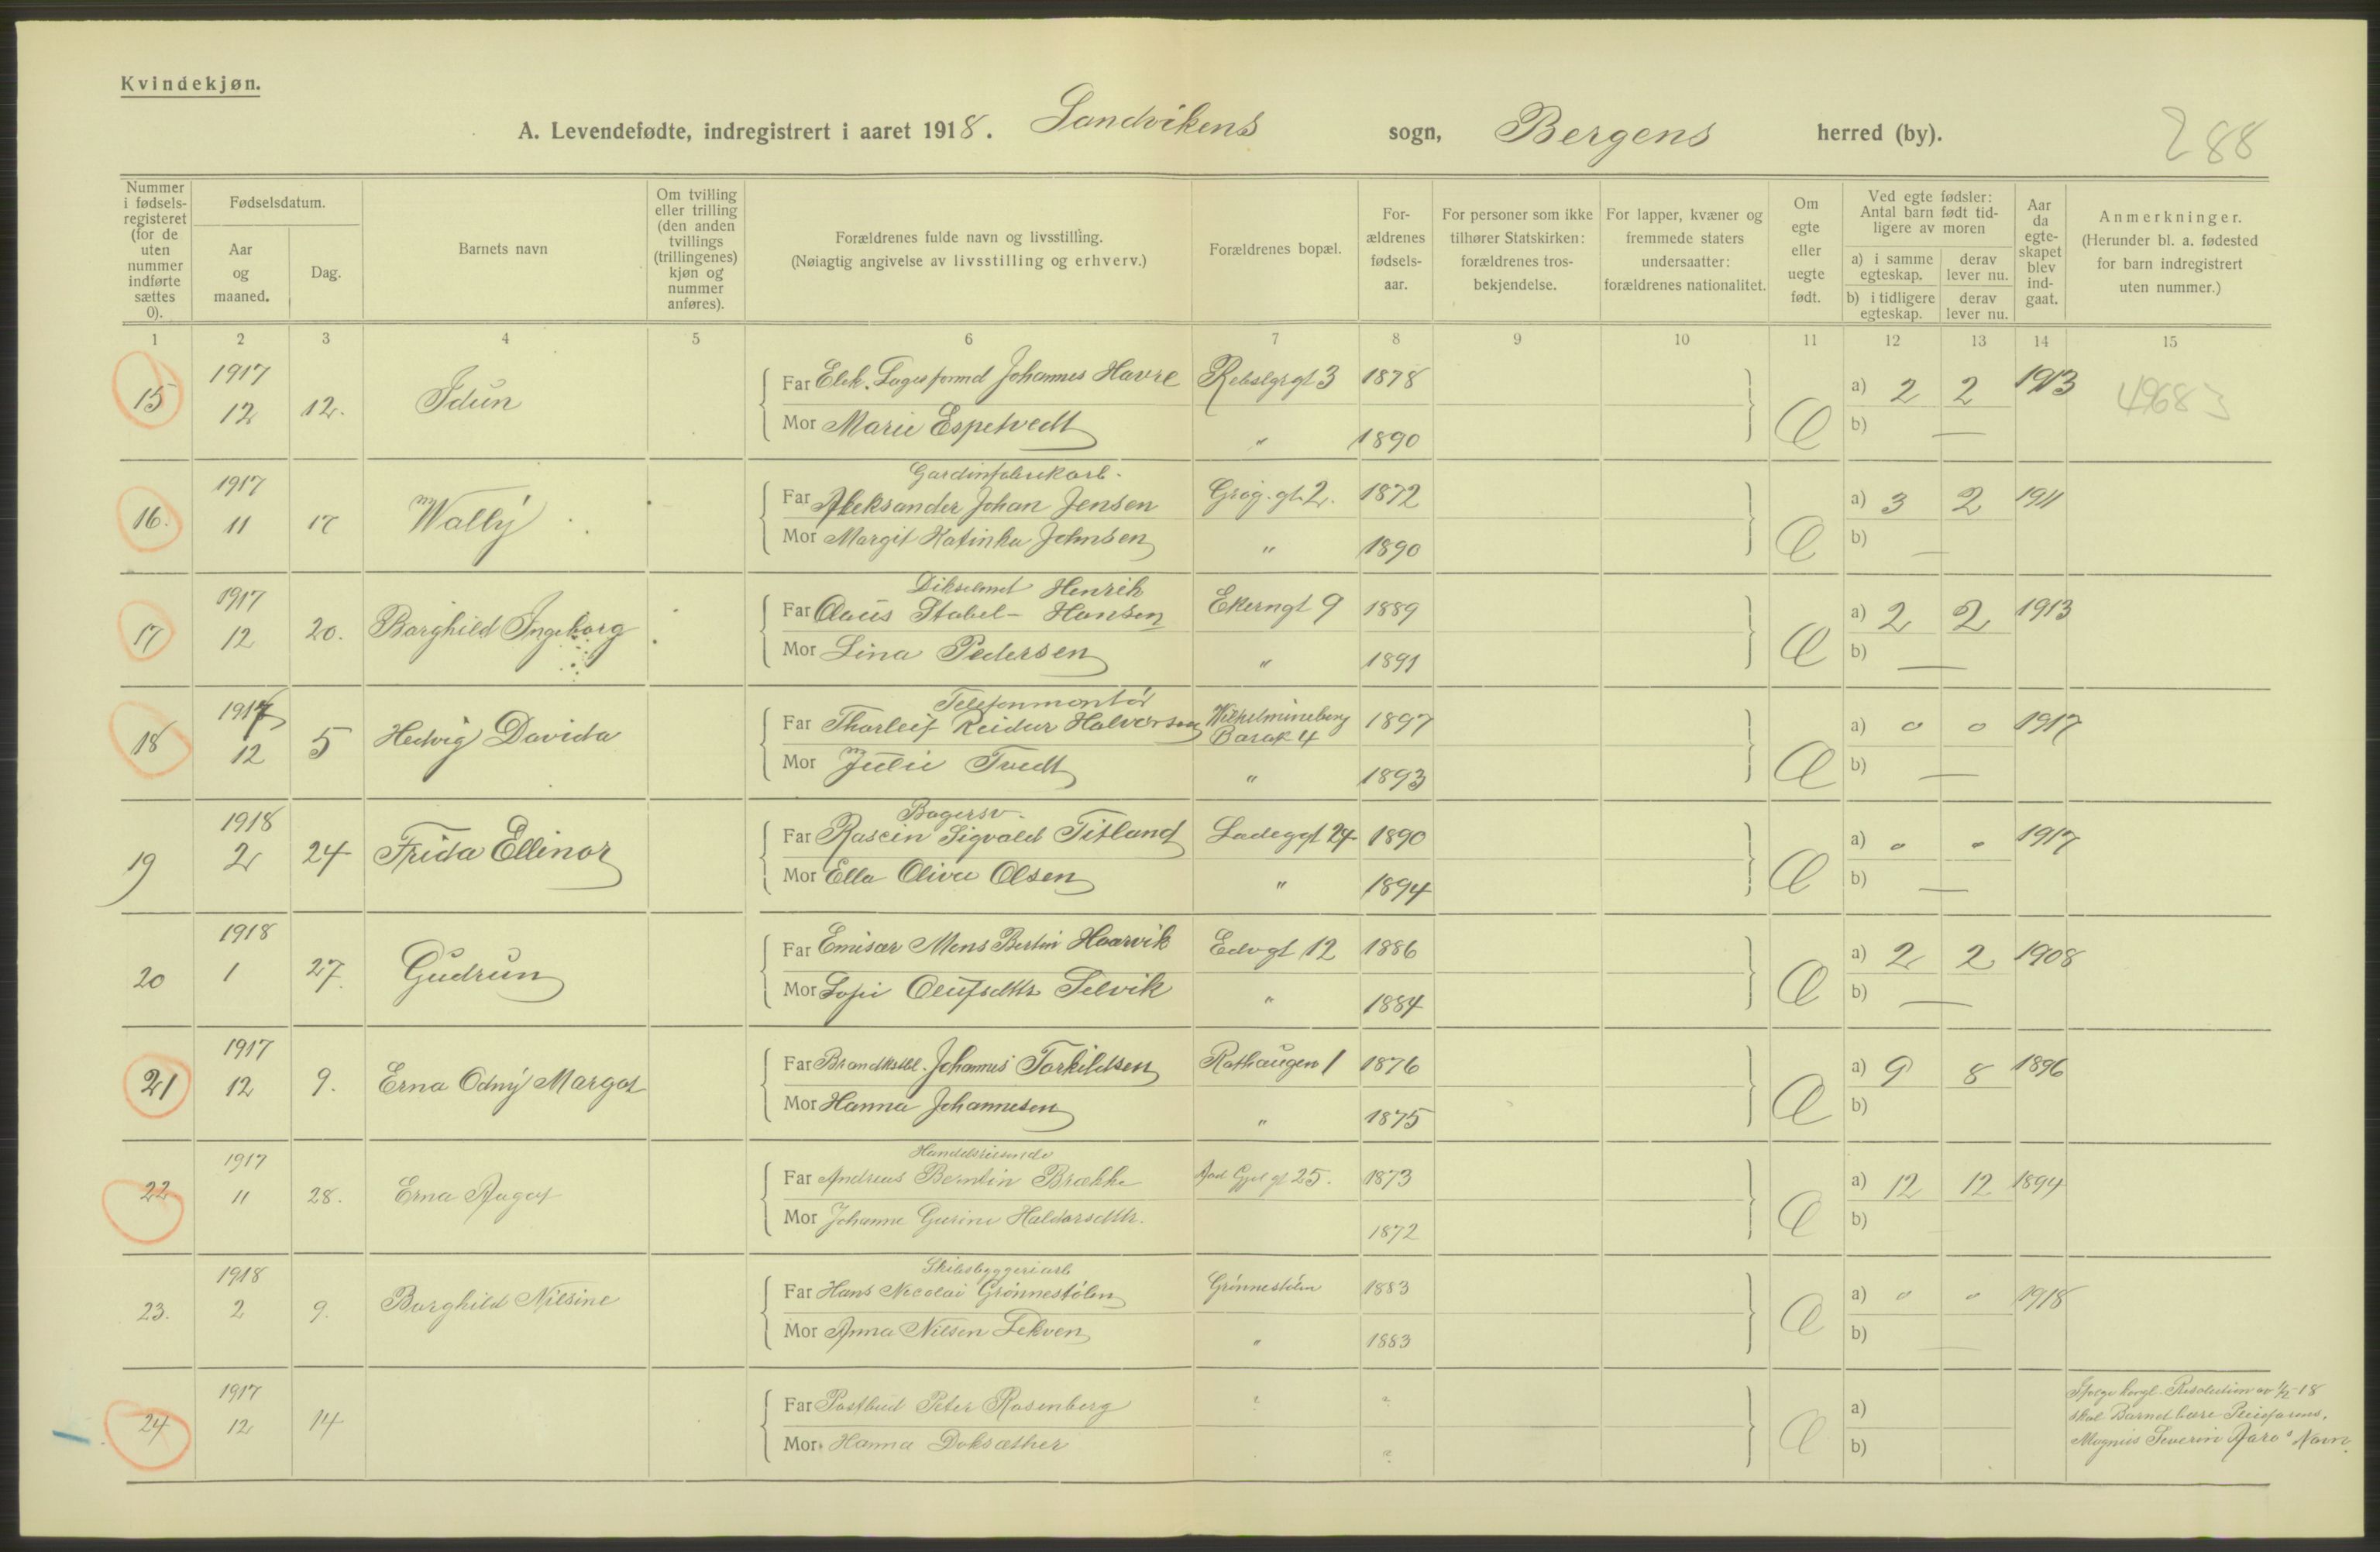 Kvindekjøn.
A. Levendefødte, indregistrert i aaret 1918. Sandvikens sogn, Bergens herred (by).
288
Nummer i fødsels-registeret (for de uten nummer indførte sættes 0).
Fødselsdatum.
Aar og maaned.
Dag.
Barnets navn
Om tvilling eller trilling (den anden tvillings (trillingenes) kjøn og nummer anføres).
Forældrenes fulde navn og livsstilling. (Nøiagtig angivelse av livsstilling og erhverv.)
Forældrenes bopæl.
For-ældrenes fødsels-aar.
For personer som ikke tilhører Statskirken: forældrenes tros-bekjendelse.
For lapper, kvæner og fremmede staters undersaatter: forældrenes nationalitet.
Om egte eller uegte født.
Ved egte fødsler: Antal barn født tid-ligere av moren
a) i samme egteskap.
derav lever nu.
b) i tidligere egteskap.
derav lever nu.
Aar da egte-skapet blev ind-gaat.
Anmerkninger. (Herunder bl. a. fødested for barn indregistrert uten nummer.)
1 2 3 4 5 6 7 8 9 10 11 12 13 14 15
15 1917 12 12. Idun
Far Elek. Johannes Havre 3 1878
Mor Marie Espetvedt " 1890
a) 2 2 1913
b) —
49683
16. 1917 11 17 Wally
Gardinfabrikarb.
Far Aleksander Johan Jensen gt. 2. 1872
Mor Margit Katinka Johnsen " 1890
a) 3 2 1911
b) —
17 1917 12 20. Borghild Ingeborg
Henrik
Far Claus Stabel - Hansen Ekerngt 9 1889
Mor Lina Pedersen " 1891
a) 2 2 1913
b) —
18 1917 12 5 Hedvig Davida
Telefonmontør
Far Thorleif Reidur Halvorsen Wilhelmineborg Barak 4 1897
Mor Julie Tvedt " 1893
a) 0 0 1917
b) —
19 1918 2 24 Frida Ellinor
Bagersv.
Far Rasein Sigvald Titland Ladeggt 24 1890
Mor Ella Olive Olsen " 1894
a) 0 0 1917
b) —
20 1918 1 27. Gudrun
Far Emisær Mons Bertin Haarvik Edvgt 12 1886
Mor Sofie Olufsdttr Selvik " 1884
a) 2 2 1908
b) —
21 1917 12 9. Erna Odny Margot
Far Johannes Torkildsen Rothaugen 1 1876
Mor Hanna Johannesen " 1875
a) 9 8 1896
b)
22 1917 11 28. Erna Aagot
Handelsreisende
Far Andreas Berntin Brække gt 25. 1873
Mor Johanne Gurine Haldorsdttr. 1872
a) 12 12 1894
b)
23. 1918 2 9. Borghild Nilsine
Skibsbyggeriarb
Far Hans Nicolai Grønnestølen Grønnestølen 1883
Mor Anna Nilsen Tekven " 1883
a) 0 0 1918
b) —
24 1917 12 14
Far Postbud Peter Rosenberg ? ?
Mor Hanna Doksæther ?
a)
b)
Ifølge kongl. Resolution av 18
skal Barnet bære Pleiefarens,
Magnus Severin Aare's Navn.